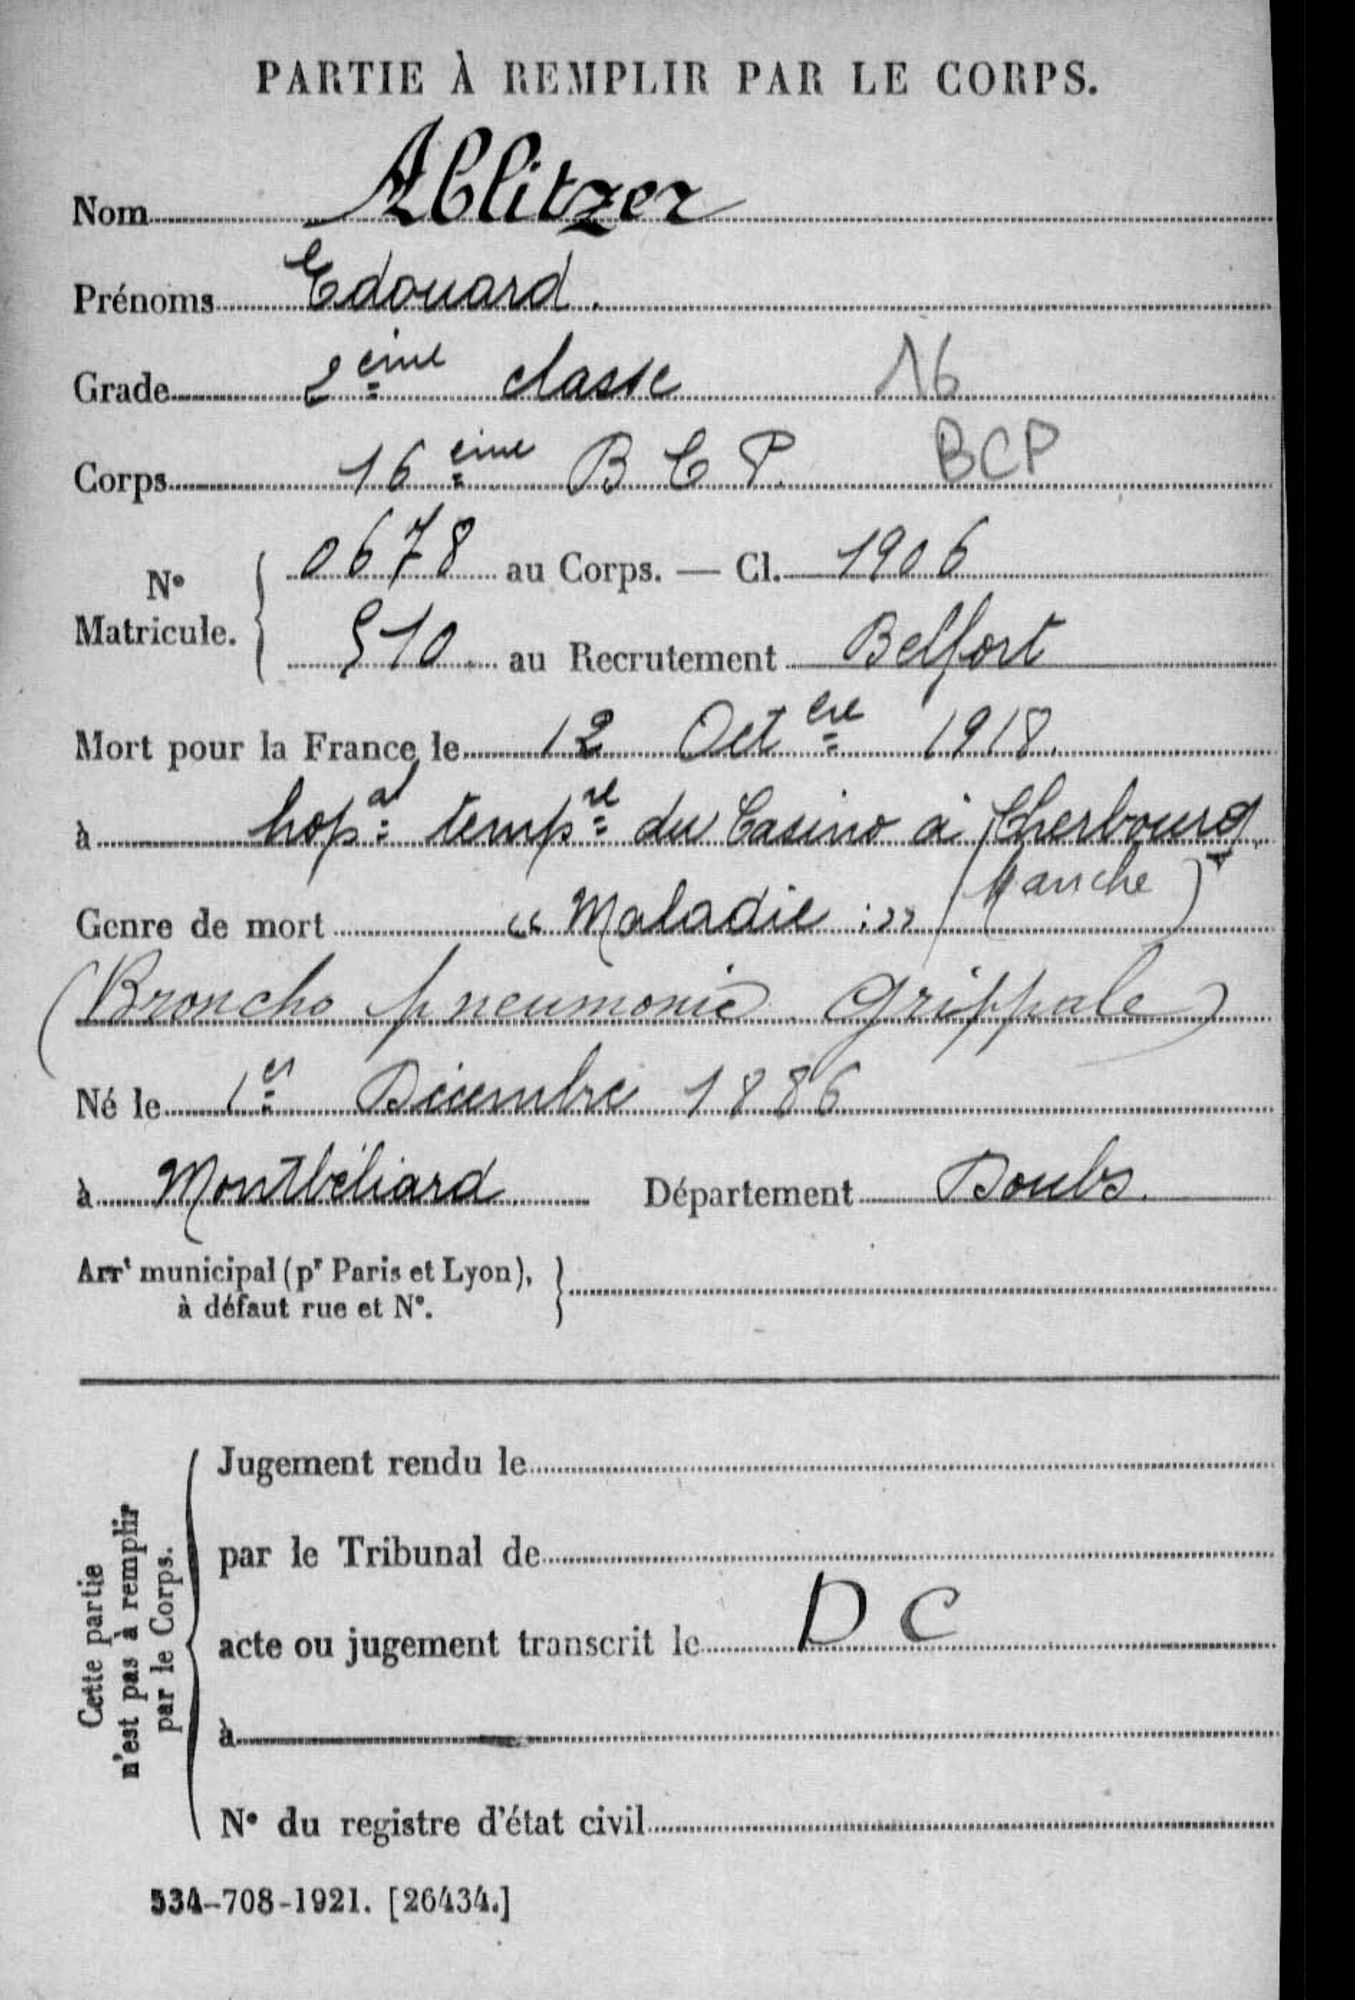 PARTIE À REMPLIR PAR LE CORPS.
Nom Ablitzer
Prénoms Edouard.
Grade 2ème classe 16
Corps 16ème B C P. BCP
N° Matricule. { 0678 au Corps. — Cl. 1906
510 au Recrutement Belfort
Mort pour la France le 12 Octbre 1918.
à hopal tempre du Casino à Cherbourg
(Manche)
Genre de mort "Maladie :"
(Broncho pneumonie Grippale)
Né le 1er Décembre 1886
à Montbéliard Département Doubs.
Arrt municipal (pr Paris et Lyon), }
à défaut rue et N°.
Cette partie
n'est pas à remplir
par le Corps.
Jugement rendu le
par le Tribunal de
acte ou jugement transcrit le D C
à
N° du registre d'état civil
534-708-1921. [26434.]